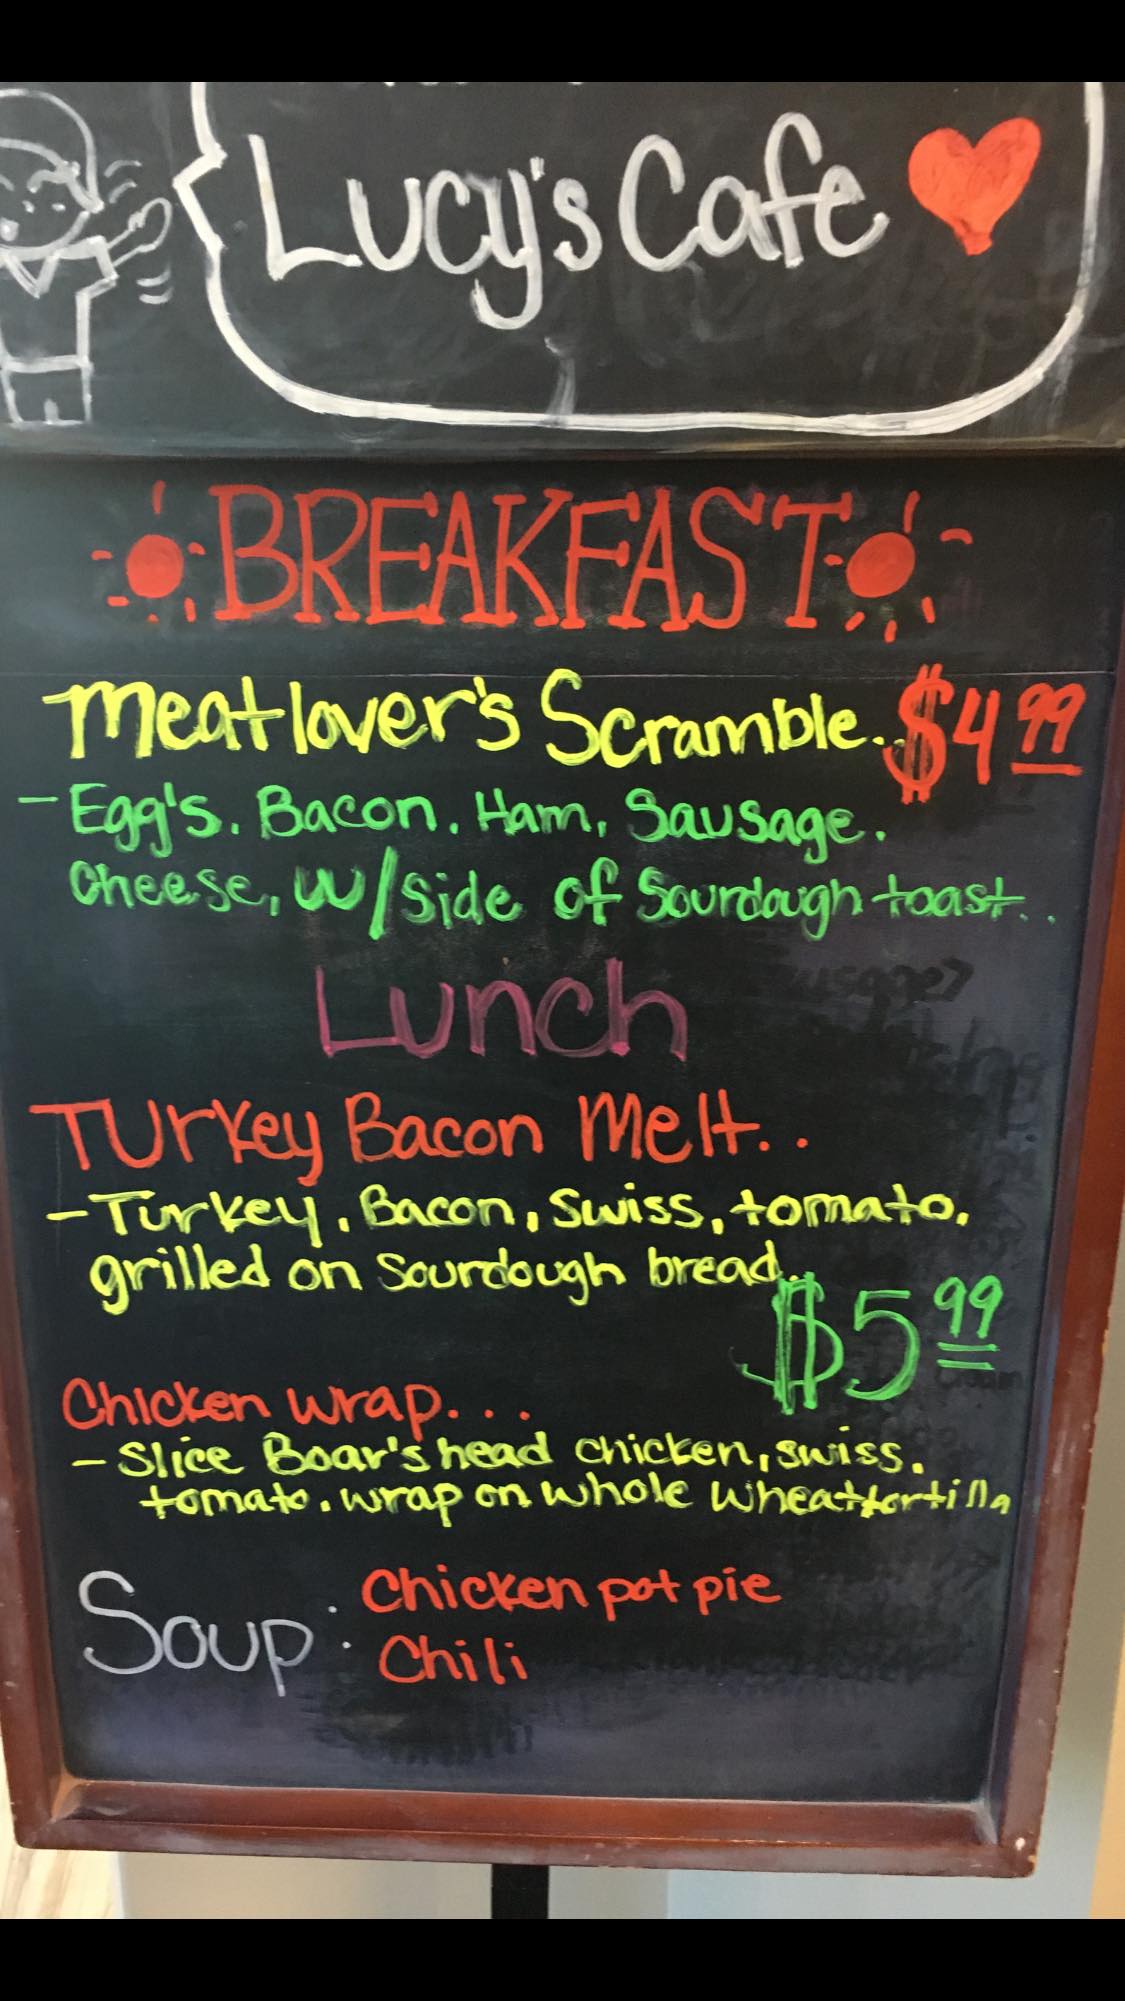 Lucy's Cafe
BREAKFAST
Meatlover's Scramble.. $4 99
- Egg's. Bacon. Ham, Sausage.
Cheese, w/side of Sourdough toast..
Lunch
Turkey Bacon Melt..
- Turkey, Bacon, Swiss, tomato.
grilled on Sourdough bread..
$5 99
Chicken wrap...
- Slice Boar's head chicken, swiss.
tomato. wrap on whole wheat tortilla
Soup: Chicken pot pie
Chili